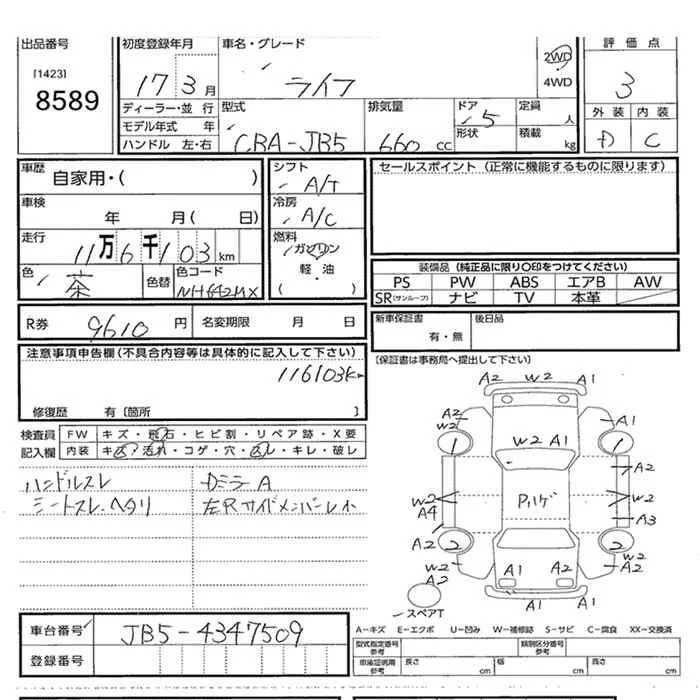 出品番号
[1423]
8589
初度登録年月
17 3月
車名・グレード
ライフ
2WD
4WD
評価点
3
外装 内装
D C
ディーラー・並行
モデル年式 年
ハンドル 左・右
型式
CBA-JB5
排気量
660 cc
ドア 5
形状
定員 人
積載 kg
車歴
自家用・( )
車検
年 月( 日)
走行
11万6千103km
色
茶
色替
色コード
シフト
A/T
冷房
A/C
燃料
ガソリン
軽・油
( )
セールスポイント (正常に機能するものに限ります)
装備品 (純正品に限り〇印をつけてください)
PS PW ABS エアB AW
SR(サンルーフ) ナビ TV 本革
R券 9610 円 名変期限 月 日
新車保証書
有・無
後日品
(保証書は事務局へ提出して下さい)
注意事項申告欄 (不具合内容等は具体的に記入して下さい)
116103km
修復歴 有〔箇所 〕
検査員
記入欄
FW キズ・飛石・ヒビ割・リペア跡・X要
内装 キズ・汚れ・コゲ・穴・スレ・キレ・破レ
ハンドルスレ
シートスレ、ヘタリ
DミラーA
左Rサイドメンバー小
A2 W2 A1
A2
W2
A1
1 1
W2 A1
A2
W2
A4
Pハゲ
W2
A3
A2
2 2
W2
A2
A1 A2
W2
A2
A1 A1
スペアT
車台番号
JB5-4347509
登録番号
A-キズ E-エクボ U-凹み W-補修跡 S-サビ C-腐食 XX-交換済
型式指定番号
参考
類別区分番号
参考
車庫証明用
参考
長さ cm
幅 cm
高さ cm